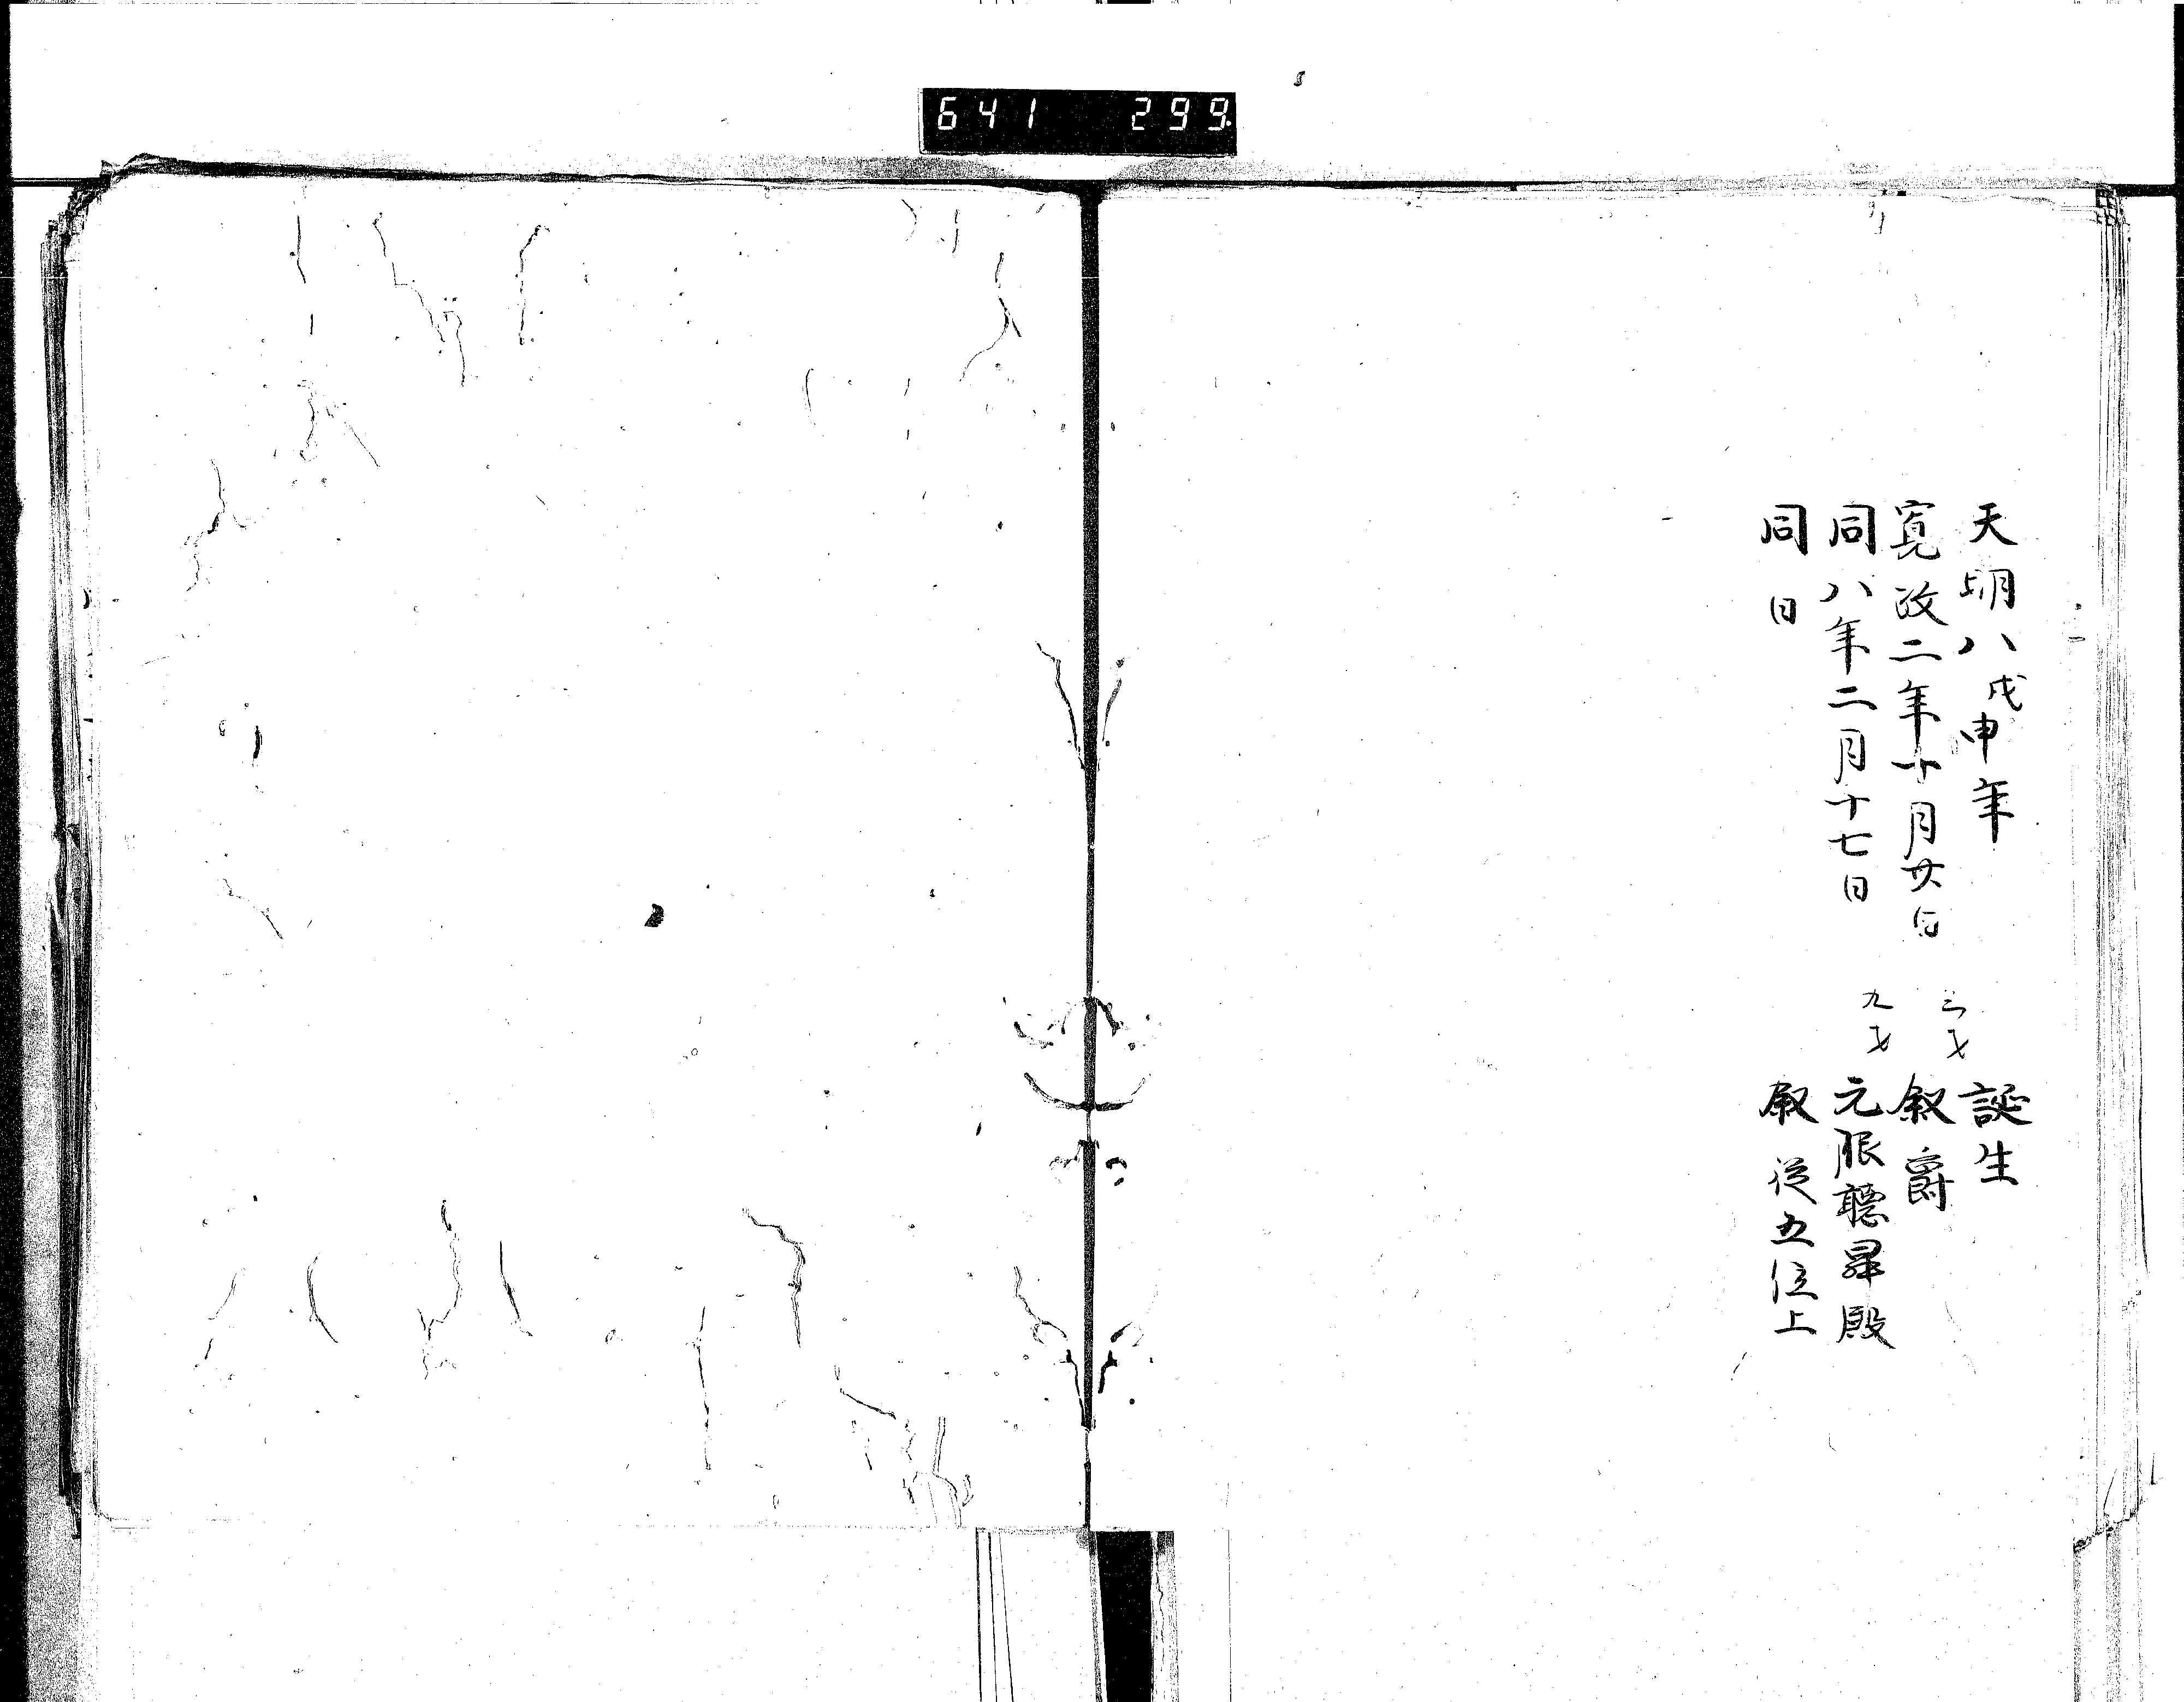 641 299
天明八戊申年 誕生
寛政二年十月廿日 三才 叙爵
同八年二月十七日 九才 元服聴昇殿
同日 叙従五位上